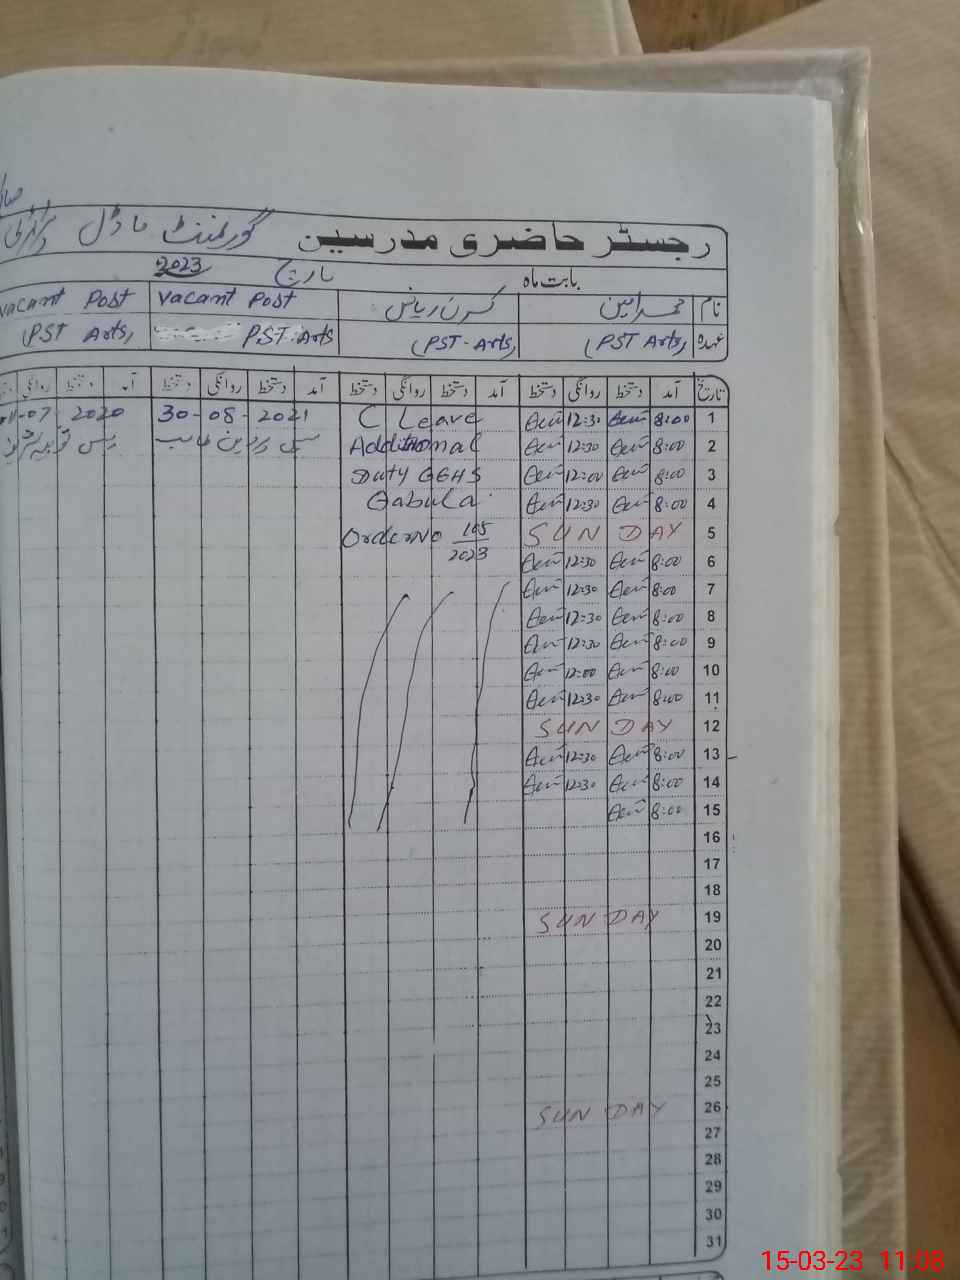 رجسٹر حاضری مدرسین گورنمنٹ ماڈل
بابت ماہ مارچ 2023
نام محمد امین کرن ریاض Vacant Post Vacant Post
عہدہ (PST Arts) (PST-Arts) PST-Arts (PST Arts)
تاریخ آمد دستخط روانگی دستخط آمد دستخط روانگی دستخط آمد دستخط روانگی دستخط آمد دستخط روانگی
1 8:00 12:30 C Leave 30-08-2021 07-2020
2 8:00 12:30 Additional
3 8:00 12:00 Duty GGHS
4 8:00 12:30 Qabula
5 SUN DAY Order No 105/2023
6 8:00 12:30
7 8:00 12:30
8 8:00 12:30
9 8:00 12:30
10 8:00 12:00
11 8:00 12:30
12 SUN DAY
13 8:00 12:30
14 8:00 12:30
15 8:00
16
17
18
19 SUN DAY
20
21
22
23
24
25
26 SUN DAY
27
28
29
30
31
15-03-23 11:08